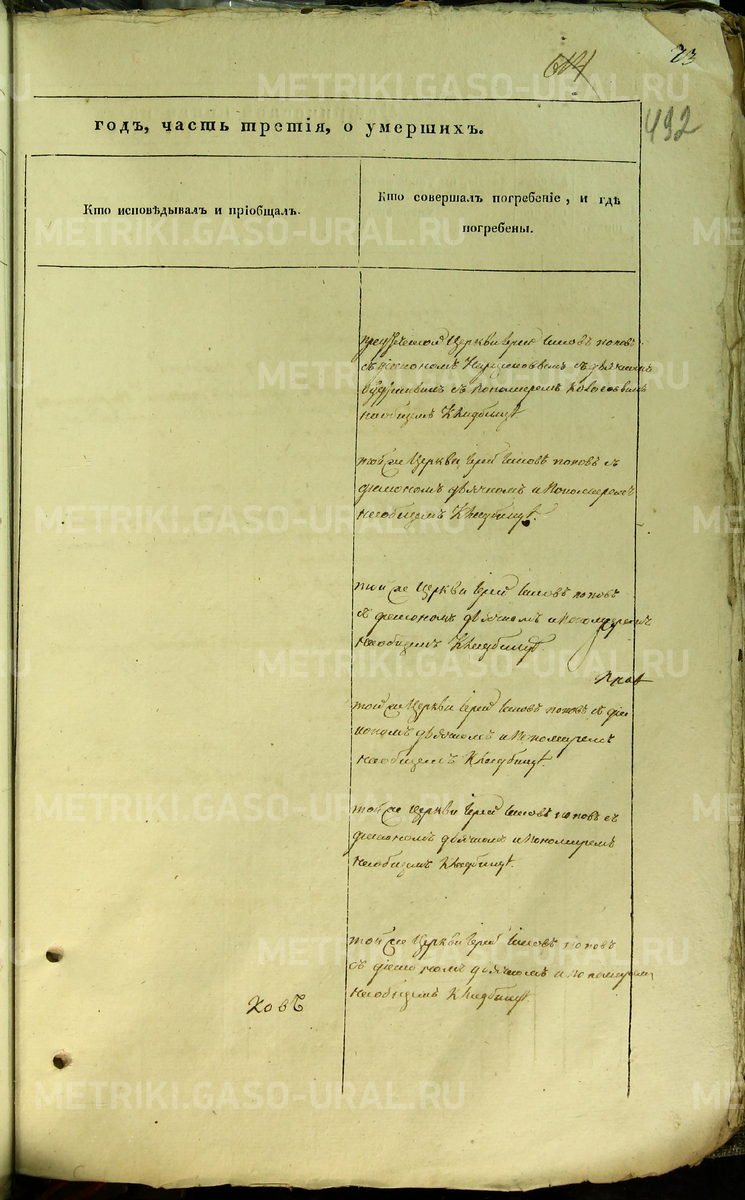 73
614
492
годъ, часть третія, о умершихъ.
Кто исповѣдывалъ и пріобщалъ.
Кто совершалъ погребеніе, и гдѣ
погребены.
Церкви Іерей Іаковъ поповъ
съ съ дьячкомъ
съ пономаремъ
на общемъ Кладбищѣ
той же Церкви Іерей Іаковъ поповъ съ
діакономъ дьячкомъ и пономаремъ
на общемъ Кладбищѣ.
той же Церкви Іерей Іаковъ поповъ
съ діакономъ дьячкомъ и пономаремъ
на общемъ Кладбищѣ
той же Церкви Іерей Іаковъ поповъ съ діа
кономъ дьячкомъ и пономаремъ
на общемъ Кладбищѣ.
той же Церкви Іерей Іаковъ поповъ съ
діакономъ дьячкомъ и пономаремъ
на общемъ Кладбищѣ.
той же Церкви Іерей Іаковъ поповъ
съ діакономъ дьячкомъ и пономаремъ
на общемъ Кладбищѣ
ховъ
METRIKI.GASO-URAL.RU